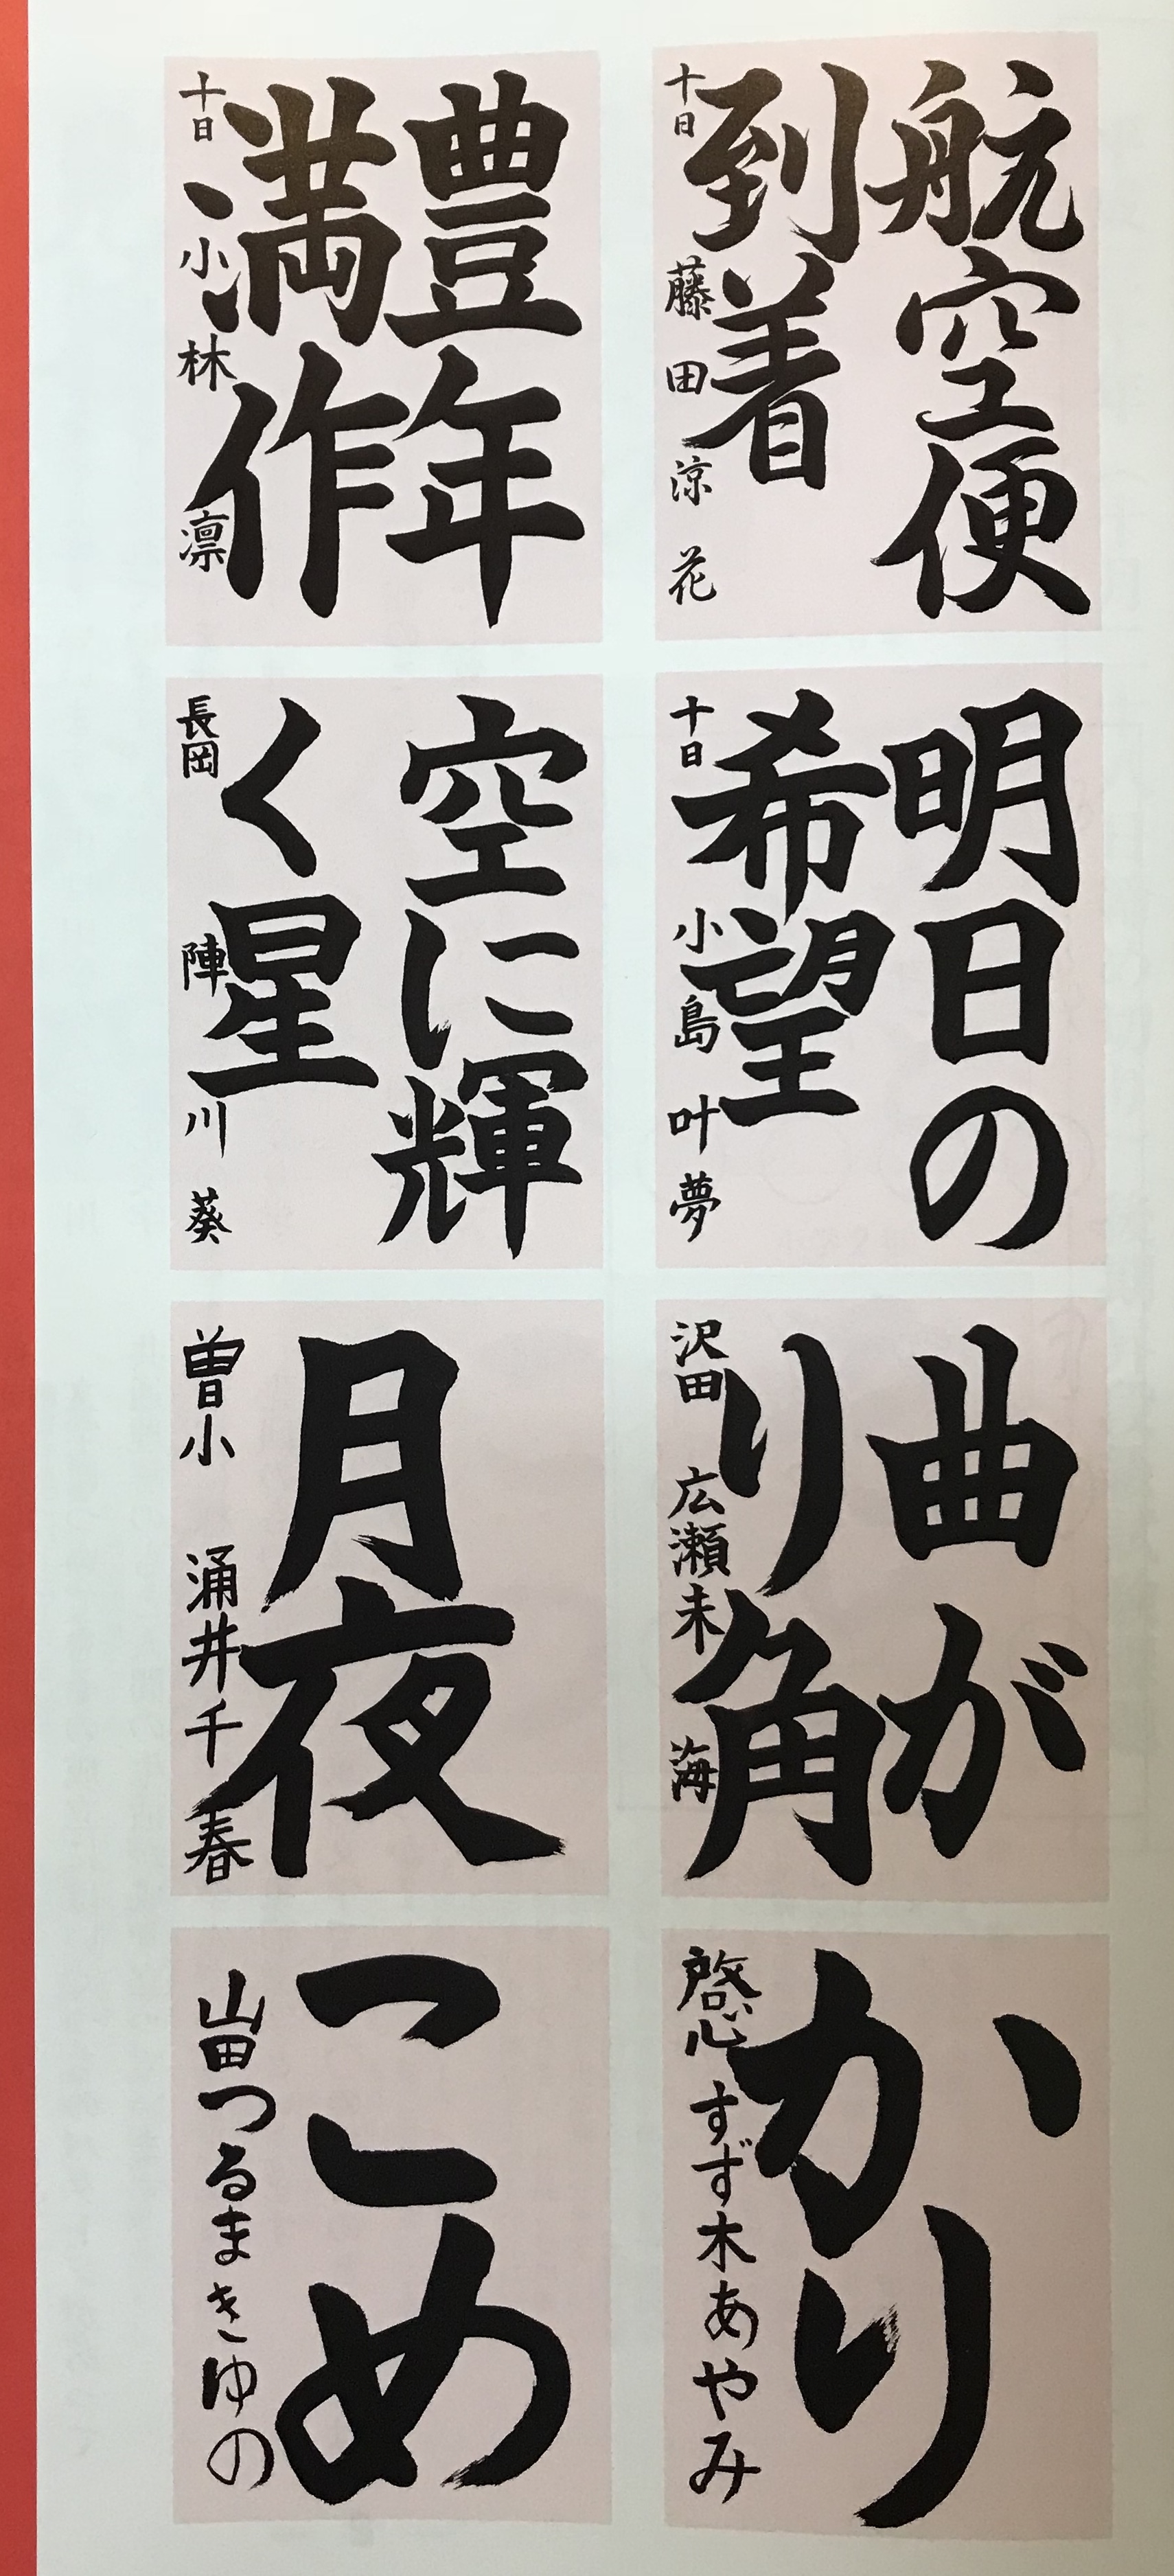 航空便
到着
十日 藤田涼花
豊年
満作
十日 小林凛
明日の
希望
十日 小島叶夢
空に輝
く星
長岡 陣川葵
曲が
り角
沢田 広瀬未海
月夜
曽小 涌井千春
かり
啓心 すず木あやみ
こめ
山田つるまきゆの